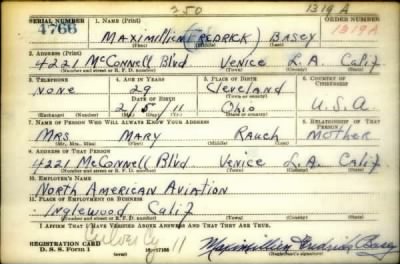 250 1319 A
SERIAL NUMBER 1. NAME (Print) ORDER NUMBER
4766 MAXIMILLIEN (FREDRICK) BASEY 1319A
(First) (Middle) (Last)
2. ADDRESS (Print)
4221 McConnell Blvd Venice L.A. Calif
(Number and street or R. F. D. number) (Town) (County) (State)
3. TELEPHONE 4. AGE IN YEARS 5. PLACE OF BIRTH 6. COUNTRY OF CITIZENSHIP
NONE 29 Cleveland
DATE OF BIRTH (Town or county)
2/5/11 Ohio U.S.A.
(Exchange) (Number) (Mo.) (Day) (Yr.) (State or country)
7. NAME OF PERSON WHO WILL ALWAYS KNOW YOUR ADDRESS 8. RELATIONSHIP OF THAT PERSON
MRS MARY Rauch MOTHER
(Mr., Mrs., Miss) (First) (Middle) (Last)
9. ADDRESS OF THAT PERSON
4221 McConnell Blvd Venice L.A. Calif
(Number and street or R. F. D. number) (Town) (County) (State)
10. EMPLOYER'S NAME
NORTH AMERICAN AVIATION
11. PLACE OF EMPLOYMENT OR BUSINESS
Inglewood Calif
(Number and street or R. F. D. number) (Town) (County) (State)
I AFFIRM THAT I HAVE VERIFIED ABOVE ANSWERS AND THAT THEY ARE TRUE.
Culver Cy 11
REGISTRATION CARD
D. S. S. Form 1 Maximillien Fredrick Basey